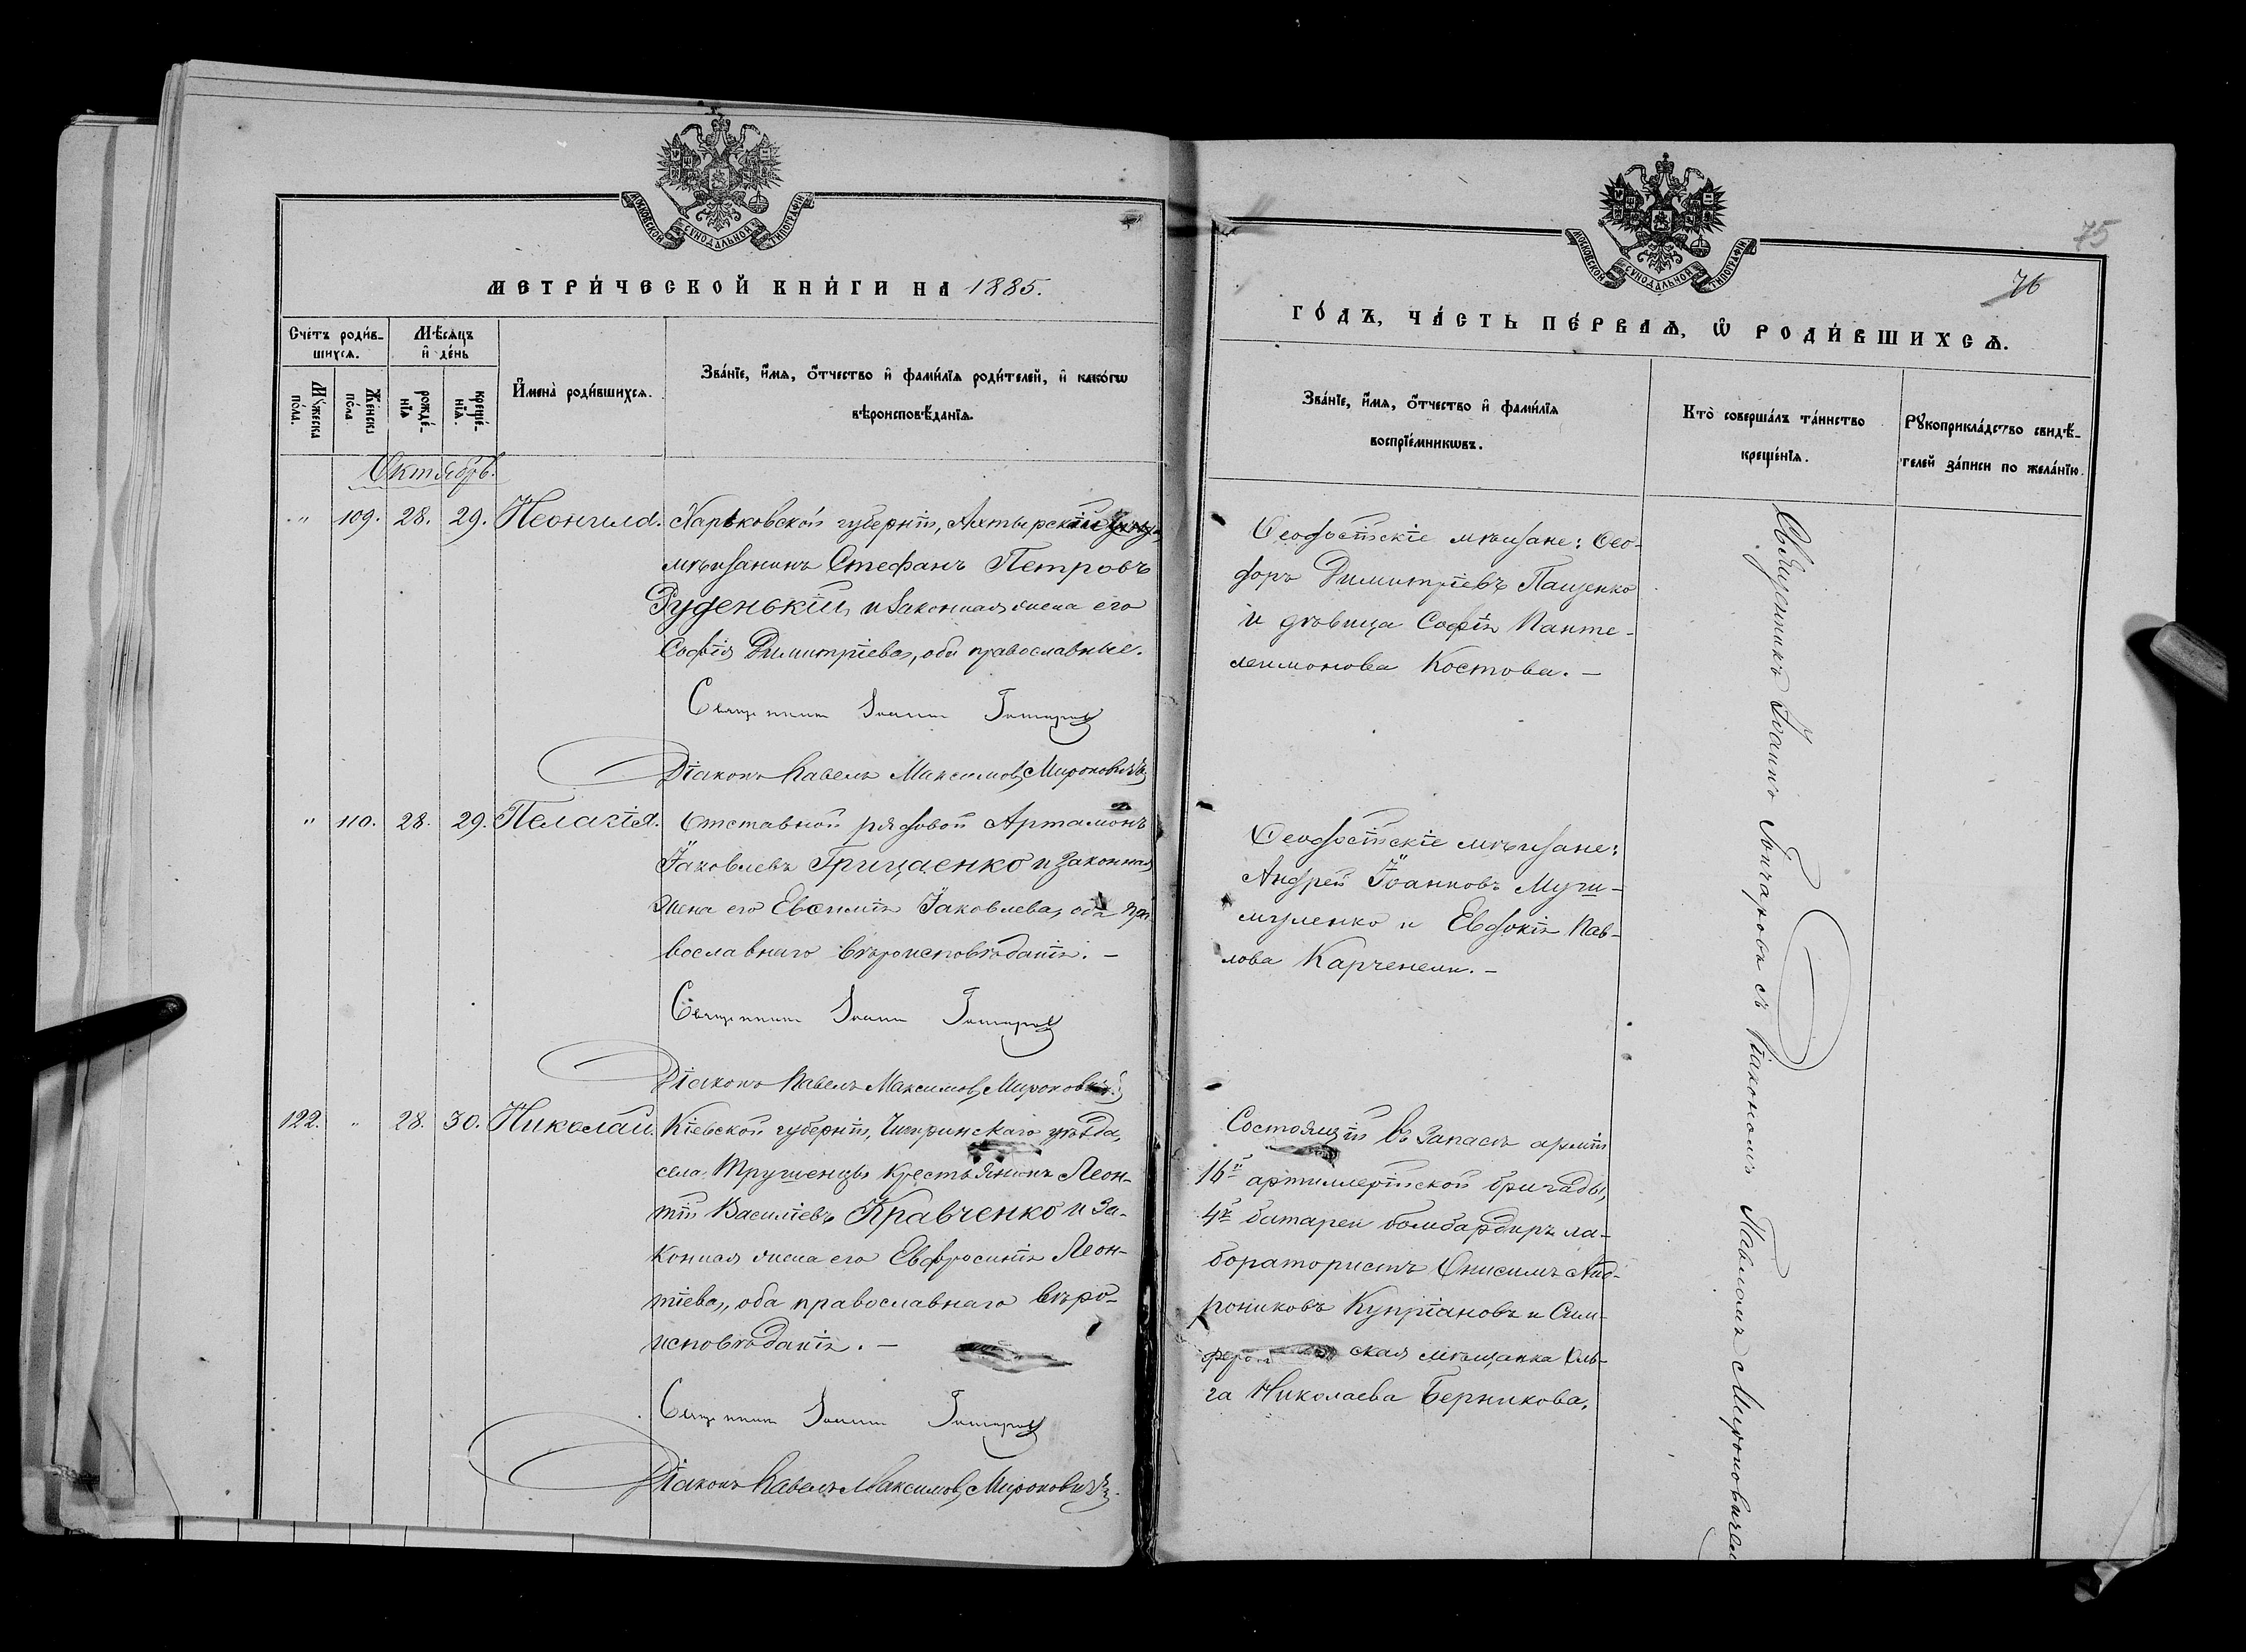 МОСКОВСКОЙ СѴНОДАЛЬНОЙ ТИПОГРАФІИ
МЕТРИ́ЧЕСКОЙ КНИ́ГИ НА 1885.
Счетъ роди́в-
шихсѧ.
Мѣ́сѧцъ
и҆ де́нь
Мꙋ́жеска
по́ла.
Же́нска
по́ла
рожде́-
нїѧ
креще́-
нїѧ.
И҆мена̀ роди́вшихсѧ.
Зва́нїе, и҆́мѧ, ѻ҆́тчество и҆ фами́лїѧ роди́телей, и҆ како́гѡ
вѣроисповѣ́данїѧ.
Октябрь.
" 109. 28. 29. Неонила. Харьковской губерніи, Ахтырскаго уѣзда,
мѣщанинъ Стефанъ Петровъ
Руденькій, и законная жена его
Софія Димитріева, оба православные.
Священникъ Іоаннъ Гончаровъ
Діаконъ Павелъ Максимовъ Мироновичъ
" 110. 28. 29. Пелагія. Отставной рядовой Артамонъ
Іаковлевъ Грицаенко и законная
жена его Евфимія Іаковлева, оба пра-
вославнаго вѣроисповѣданія. –
Священникъ Іоаннъ Гончаровъ
Діаконъ Павелъ Максимовъ Мироновичъ
122. " 28. 30. Николай. Кіевской губерніи, Чигринскаго уѣзда,
села Трушенцы крестьянинъ Леон-
тій Василіевъ Кравченко и за-
конная жена его Евфросинія Леон-
тіева, оба православнаго вѣро-
исповѣданія. –
Священникъ Іоаннъ Гончаровъ
Діаконъ Павелъ Максимовъ Мироновичъ
75
76
МОСКОВСКОЙ СѴНОДАЛЬНОЙ ТИПОГРАФІИ
ГО́ДЪ, ЧА́СТЬ ПЕ́РВАѦ, Ѡ҆ РОДИ́ВШИХСѦ.
Зва́нїе, и҆́мѧ, ѻ҆́тчество и҆ фами́лїѧ
воспрїе́мникѡвъ.
Кто̀ соверша́лъ та́инство
креще́нїѧ.
Рꙋкоприкла́дство свидѣ́-
телей за́писи по жела́нїю.
Ѳеодосійскіе мѣщане: Ѳео-
доръ Димитріевъ Пащенко
и дѣвица Софія Панте-
леимонова Костова. –
Ѳеодосійскіе мѣщане:
Андрей Іоанновъ
и Евдокія Пав-
лова –
Состоящій въ запасѣ арміи
16й артиллерійской бригады,
4й батареи бомбардиръ ла-
боратористъ Онисимъ Анд-
рониковъ Купріановъ и Сим-
феро ская мѣщанка Оль-
га Николаева Берникова.
Священникъ Іоаннъ Гончаровъ съ діакономъ Павломъ Мироновичем